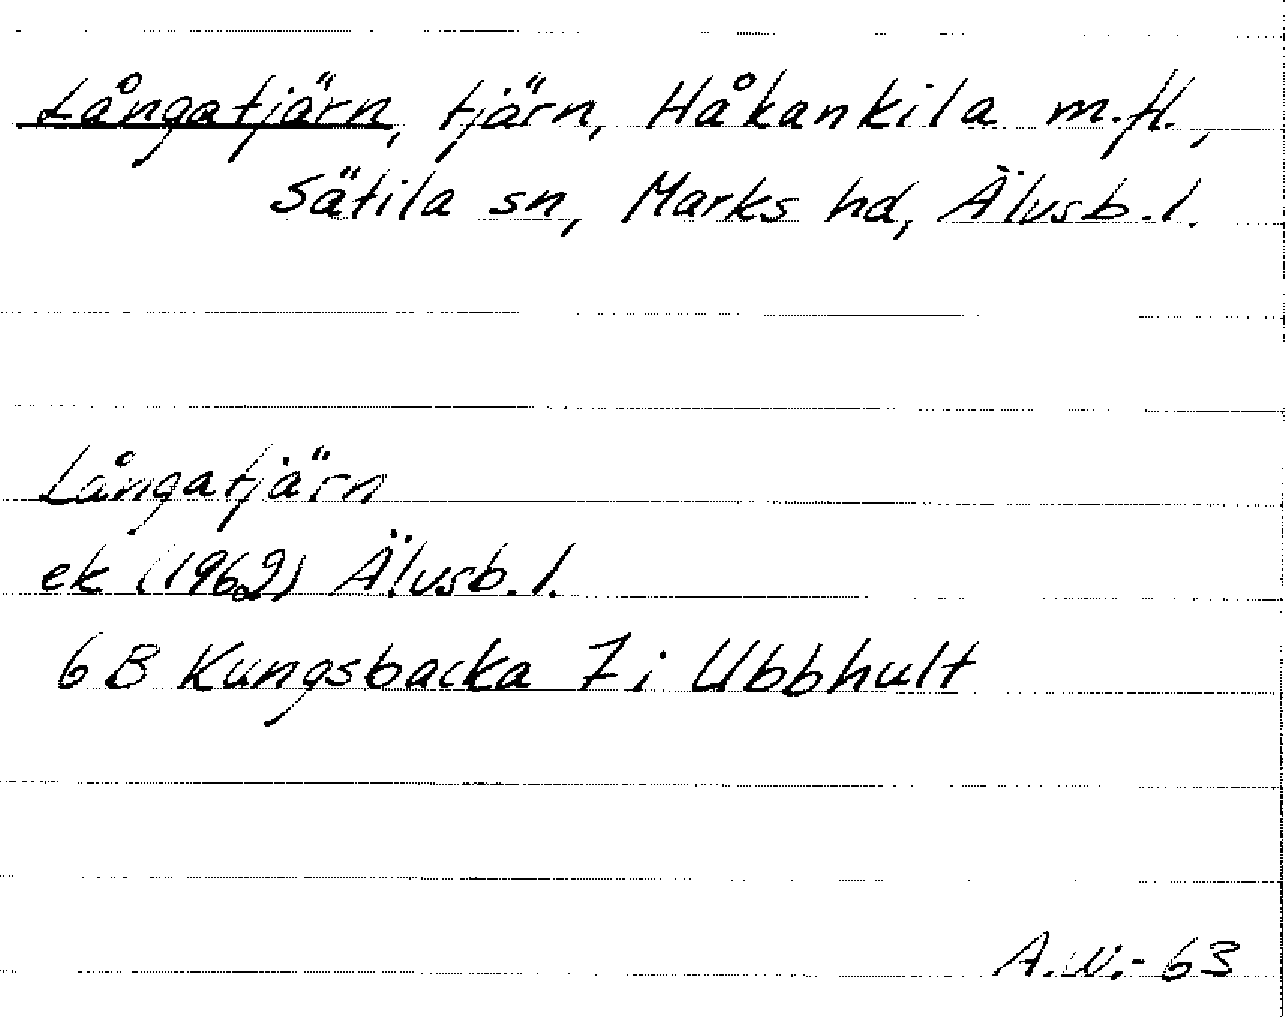 Långatjärn, tjärn, Håkankila m.fl.,
Sätila sn, Marks hd, Älvsb.l.
Långatjärn
ek (1962) Älvsb.l.
6B Kungsbacka 7i Ubbhult
A.W.-63